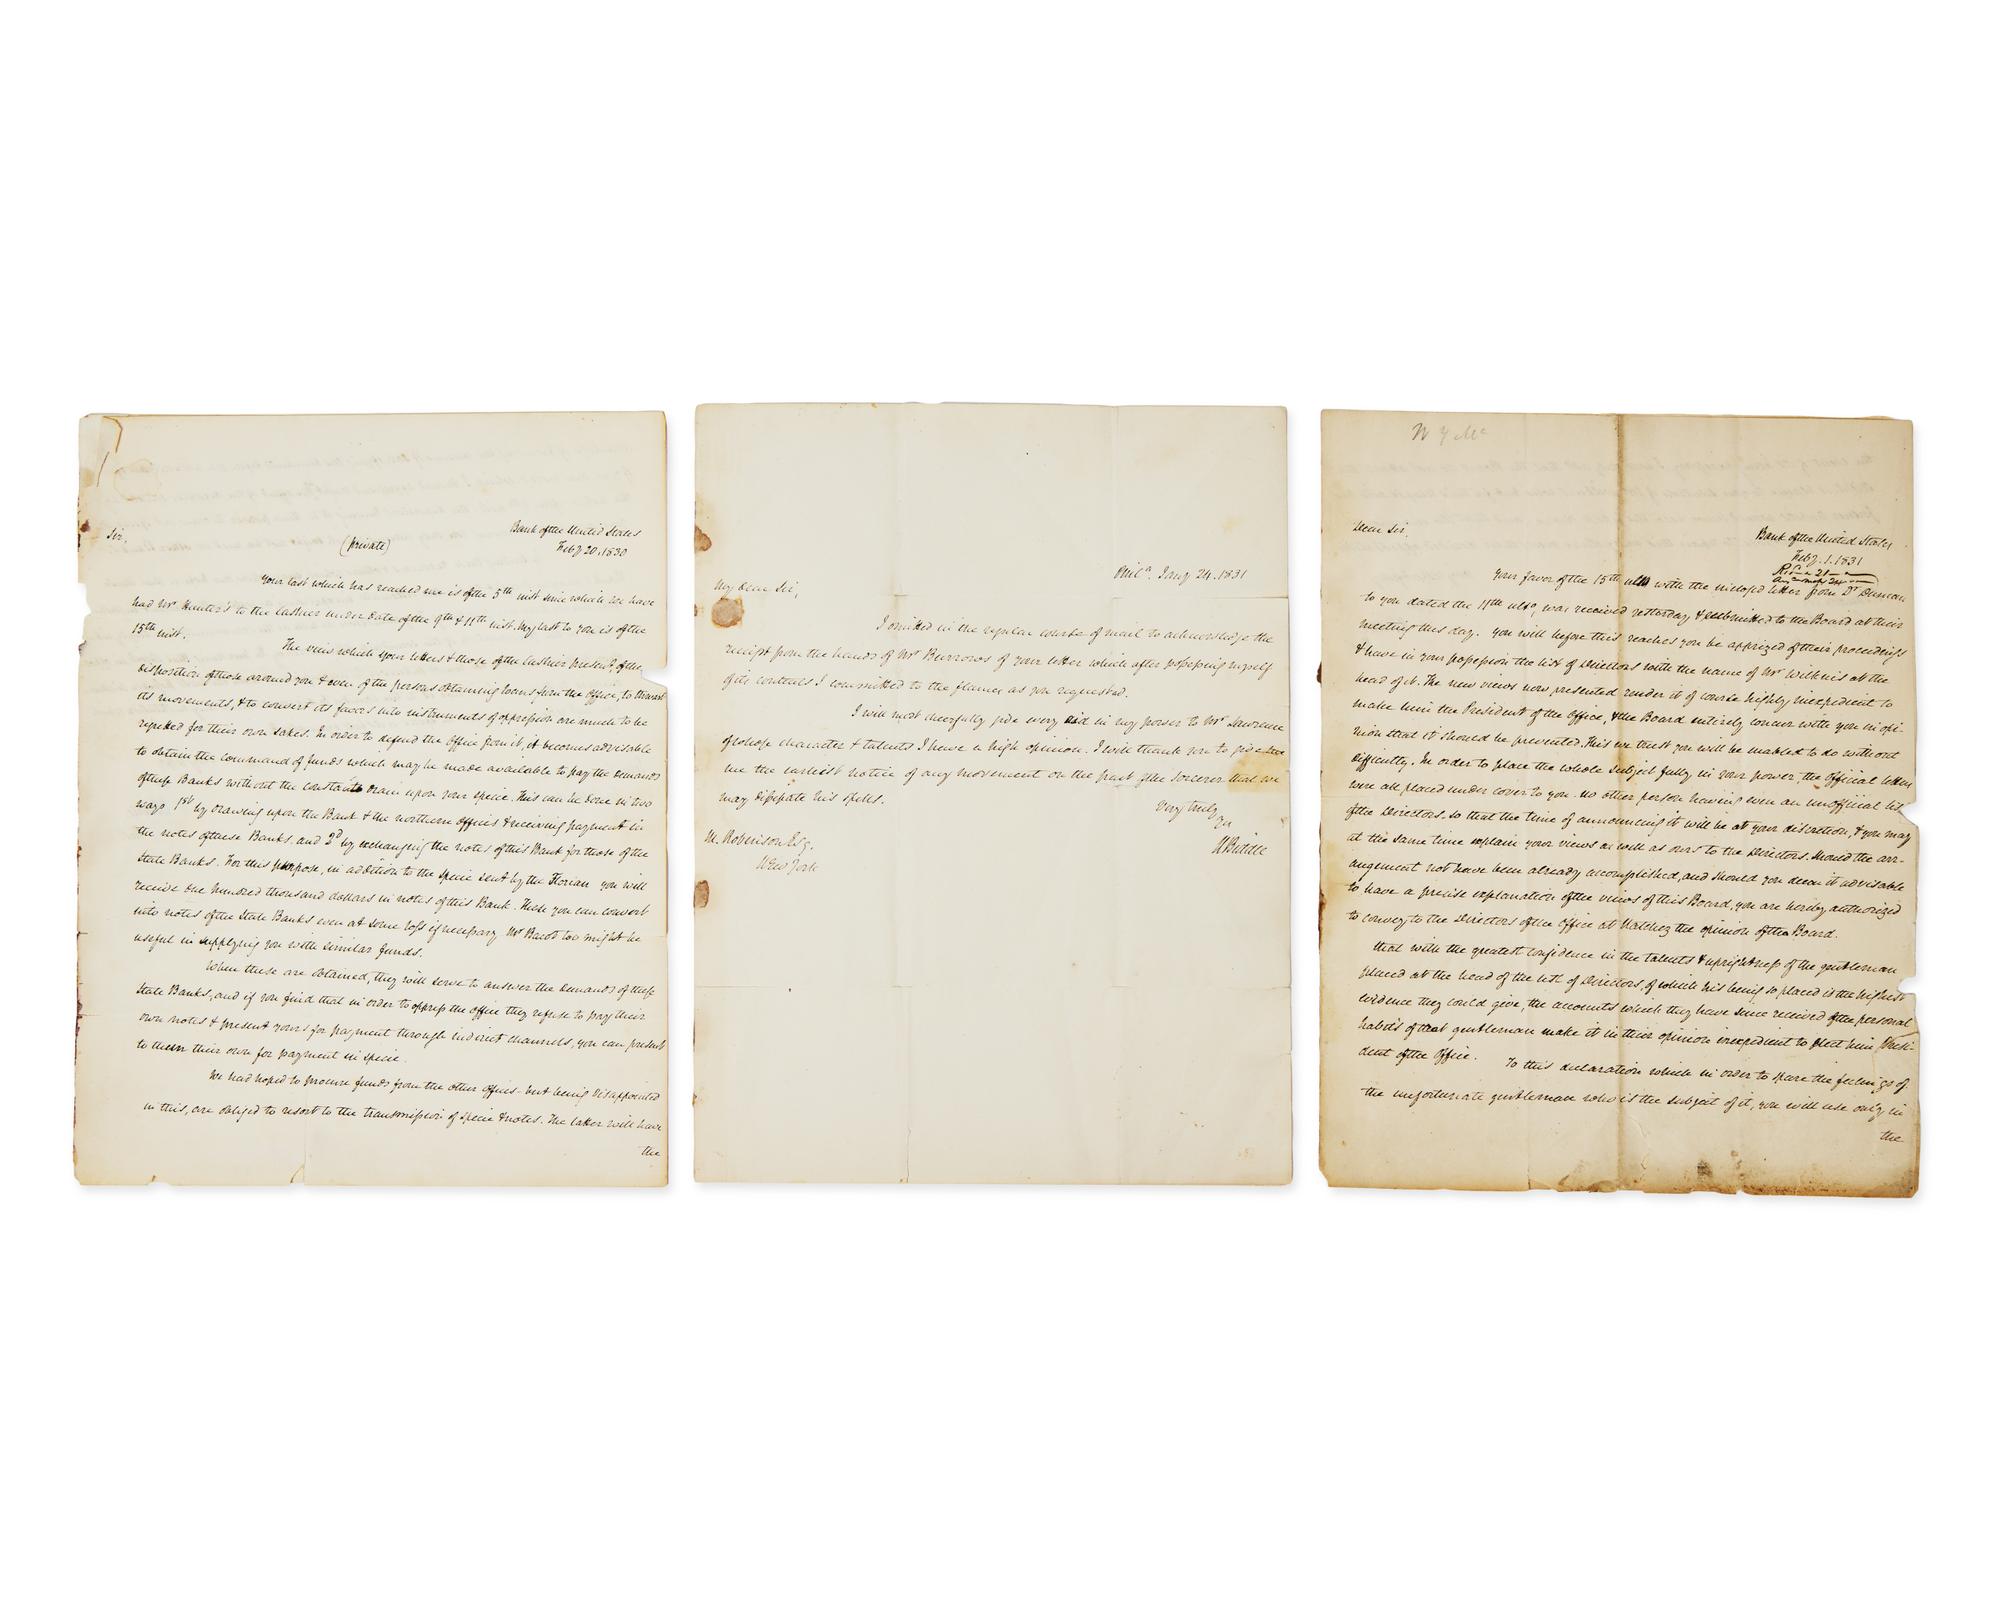 Sir,
(private)
Bank of the United States
Feby 20, 1830
Your last which has reached me is of the 5th inst since which we have
had Mr Hunter's to the Cashier under date of the 9th & 11th inst. My last to you is of the
15th inst.
The view which your letters & those of the Cashier present, of the
disposition of those around you & even of the persons obtaining loans from the Office, to thwart
its movements, & to convert its favors into instruments of oppression are much to be
regretted for their own sakes. In order to defend the Office from it, it becomes advisable
to obtain the command of funds which may be made available to pay the demands
of these Banks without the constant drain upon your specie. This can be done in two
ways 1st by drawing upon the Bank & the northern Offices & receiving payment in
the notes of these Banks. and 2d by exchanging the notes of this Bank for those of the
State Banks. For this purpose, in addition to the specie sent by the Florian you will
receive one hundred thousand dollars in notes of this Bank. These you can convert
into notes of the State Banks even at some loss if necessary Mr Bacot too might be
useful in supplying you with similar funds.
When these are obtained, they will serve to answer the demands of these
State Banks, and if you find that in order to oppress the office they refuse to pay their
own notes & present yours for payment through indirect channels, you can present
to them their own for payment in specie.
We had hoped to procure funds from the other offices - but being disappointed
in this, are obliged to resort to the transmission of specie & notes. The latter will have
the
Phila. Jany 24. 1831
My dear Sir,
I omitted in the regular course of mail to acknowledge the
receipt from the hands of Mr Burrows of your letter which after possessing myself
of its contents I committed to the flames as you requested.
I will most cheerfully give every aid in my power to Mr Lawrence
of whose character & talents I have a high opinion. I will thank you to give
me the earliest notice of any movement on the part of the Sorcerer that we
may dissipate his spells.
Very truly
yrs
N Biddle
M. Robinson Esq.
New York
Dear Sir.
Bank of the United States
Feby. 1. 1831
Your favor of the 15th ulto with the inclosed letter from Dr Duncan
to you dated the 11th ulto, was received yesterday & submitted to the Board at their
meeting this day. You will before this reaches you be apprized of their proceedings
& have in your possession the list of Directors with the name of Mr Wilkins at the
head of it. The new views now presented render it of course highly inexpedient to
make him the President of the Office, & the Board entirely concur with you in opi-
nion that it should be prevented. This we trust you will be enabled to do without
difficulty. In order to place the whole subject fully in your power, the official letters
were all placed under cover to you. no other person having even an unofficial list
of the Directors. so that the time of announcing it will be at your discretion, & you may
at the same time explain your views as well as ours to the Directors. Should the arr-
angement not have been already accomplished, and should you deem it advisable
to have a precise explanation of the views of this Board, you are hereby authorized
to convey to the Directors of the Office at Natchez the opinion of the Board.
That with the greatest confidence in the talents & uprightness of the gentleman
placed at the head of the list of Directors, of which his being so placed is the highest
evidence they could give, the accounts which they have since received of the personal
habits of that gentleman make it in their opinion inexpedient to elect him Presi-
dent of the Office. To this declaration which in order to spare the feelings of
the unfortunate gentleman who is the subject of it, you will use only in
the